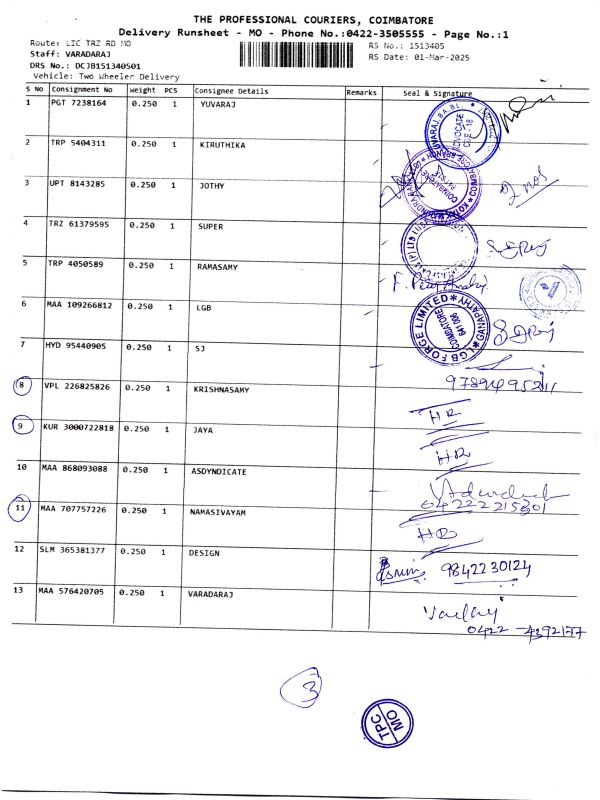 THE PROFESSIONAL COURIERS, COIMBATORE
Delivery Runsheet - MO - Phone No.:0422-3505555 - Page No.:1
Route: LIC TRZ RD MO
RS No.: 1513405
Staff: VARADARAJ
RS Date: 01-Mar-2025
DRS No.: DCJB151340501
Vehicle: Two Wheeler Delivery
S No Consignment No Weight PCS Consignee Details Remarks Seal & Signature
1 PGT 7238164 0.250 1 YUVARAJ
2 TRP 5404311 0.250 1 KIRUTHIKA
3 UPT 8143285 0.250 1 JOTHY
4 TRZ 61379595 0.250 1 SUPER
5 TRP 4050589 0.250 1 RAMASAMY
6 MAA 109266812 0.250 1 LGB
LGB FORGE LIMITED GANAPATHY
COIMBATORE
641 006
7 HYD 95440905 0.250 1 SJ
8 VPL 226825826 0.250 1 KRISHNASAMY
9 KUR 3000722818 0.250 1 JAYA
HR
10 MAA 868093088 0.250 1 ASDYNDICATE
HR
11 MAA 707757226 0.250 1 NAMASIVAYAM
04222215801
HR
12 SLM 365381377 0.250 1 DESIGN
9842230124
13 MAA 576420705 0.250 1 VARADARAJ
0422-4392177
3
TPC
MO